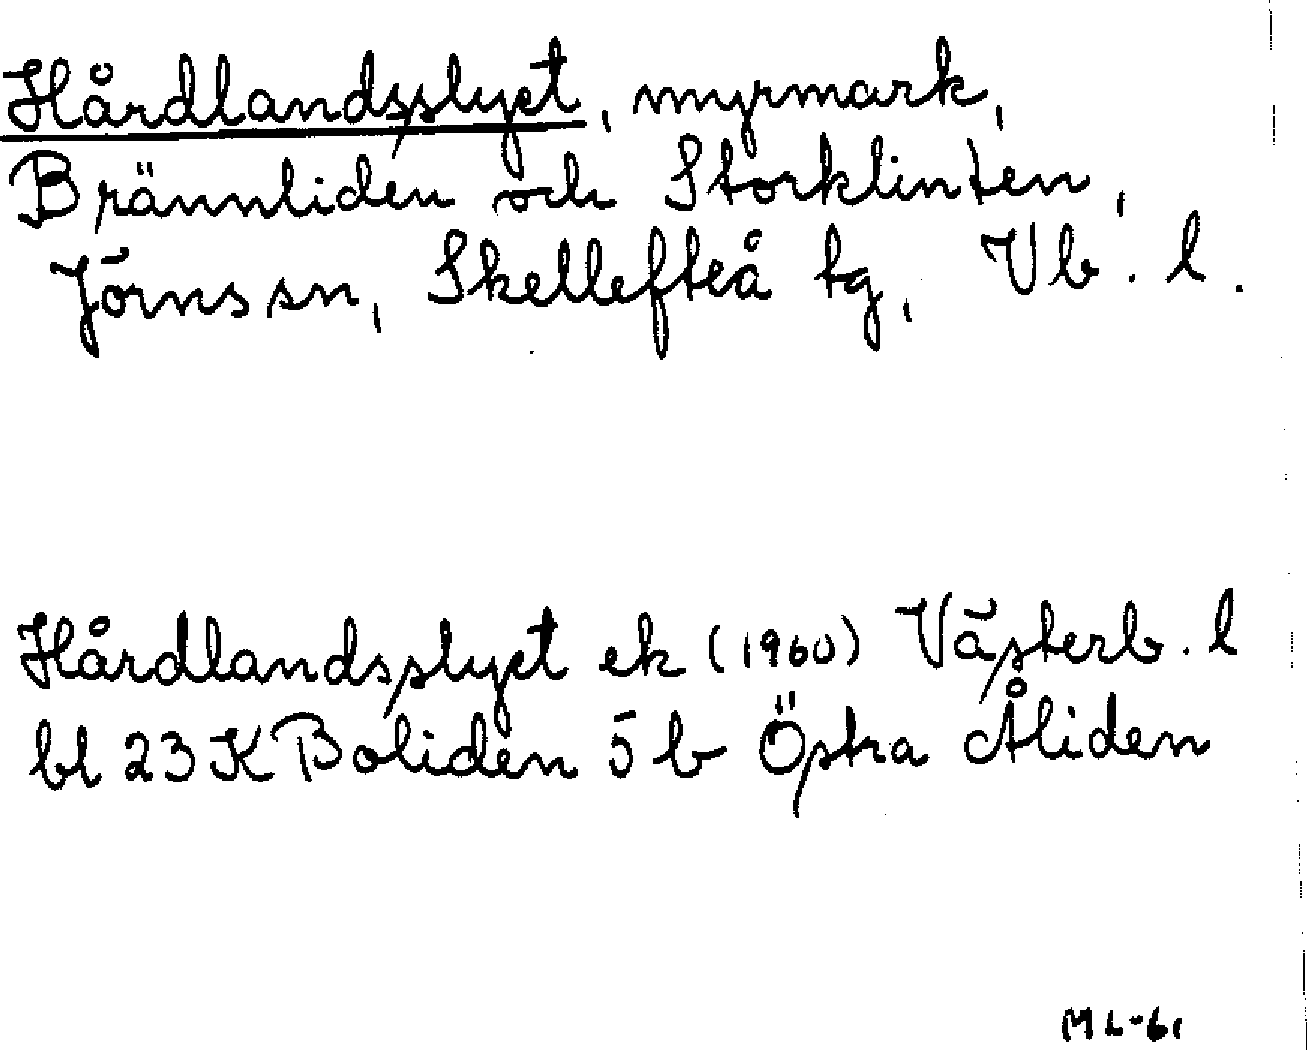 Hårdlandsslyet, myrmark,
Brännliden och Storklinten,
Jörns sn, Skellefteå tg, Vb. l.
Hårdlandsslyet ek (1960) Västerb. l
bl 23 K Boliden 5 b Östra Åliden
ML-61